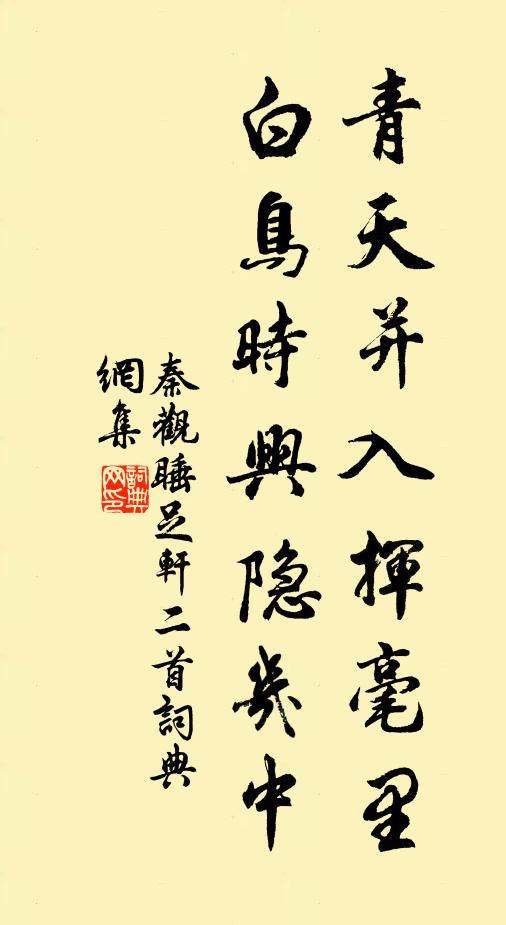 青天并入揮毫里
白鳥時興隐幾中
秦觀睡足軒二首詞典
網集
詞典網印